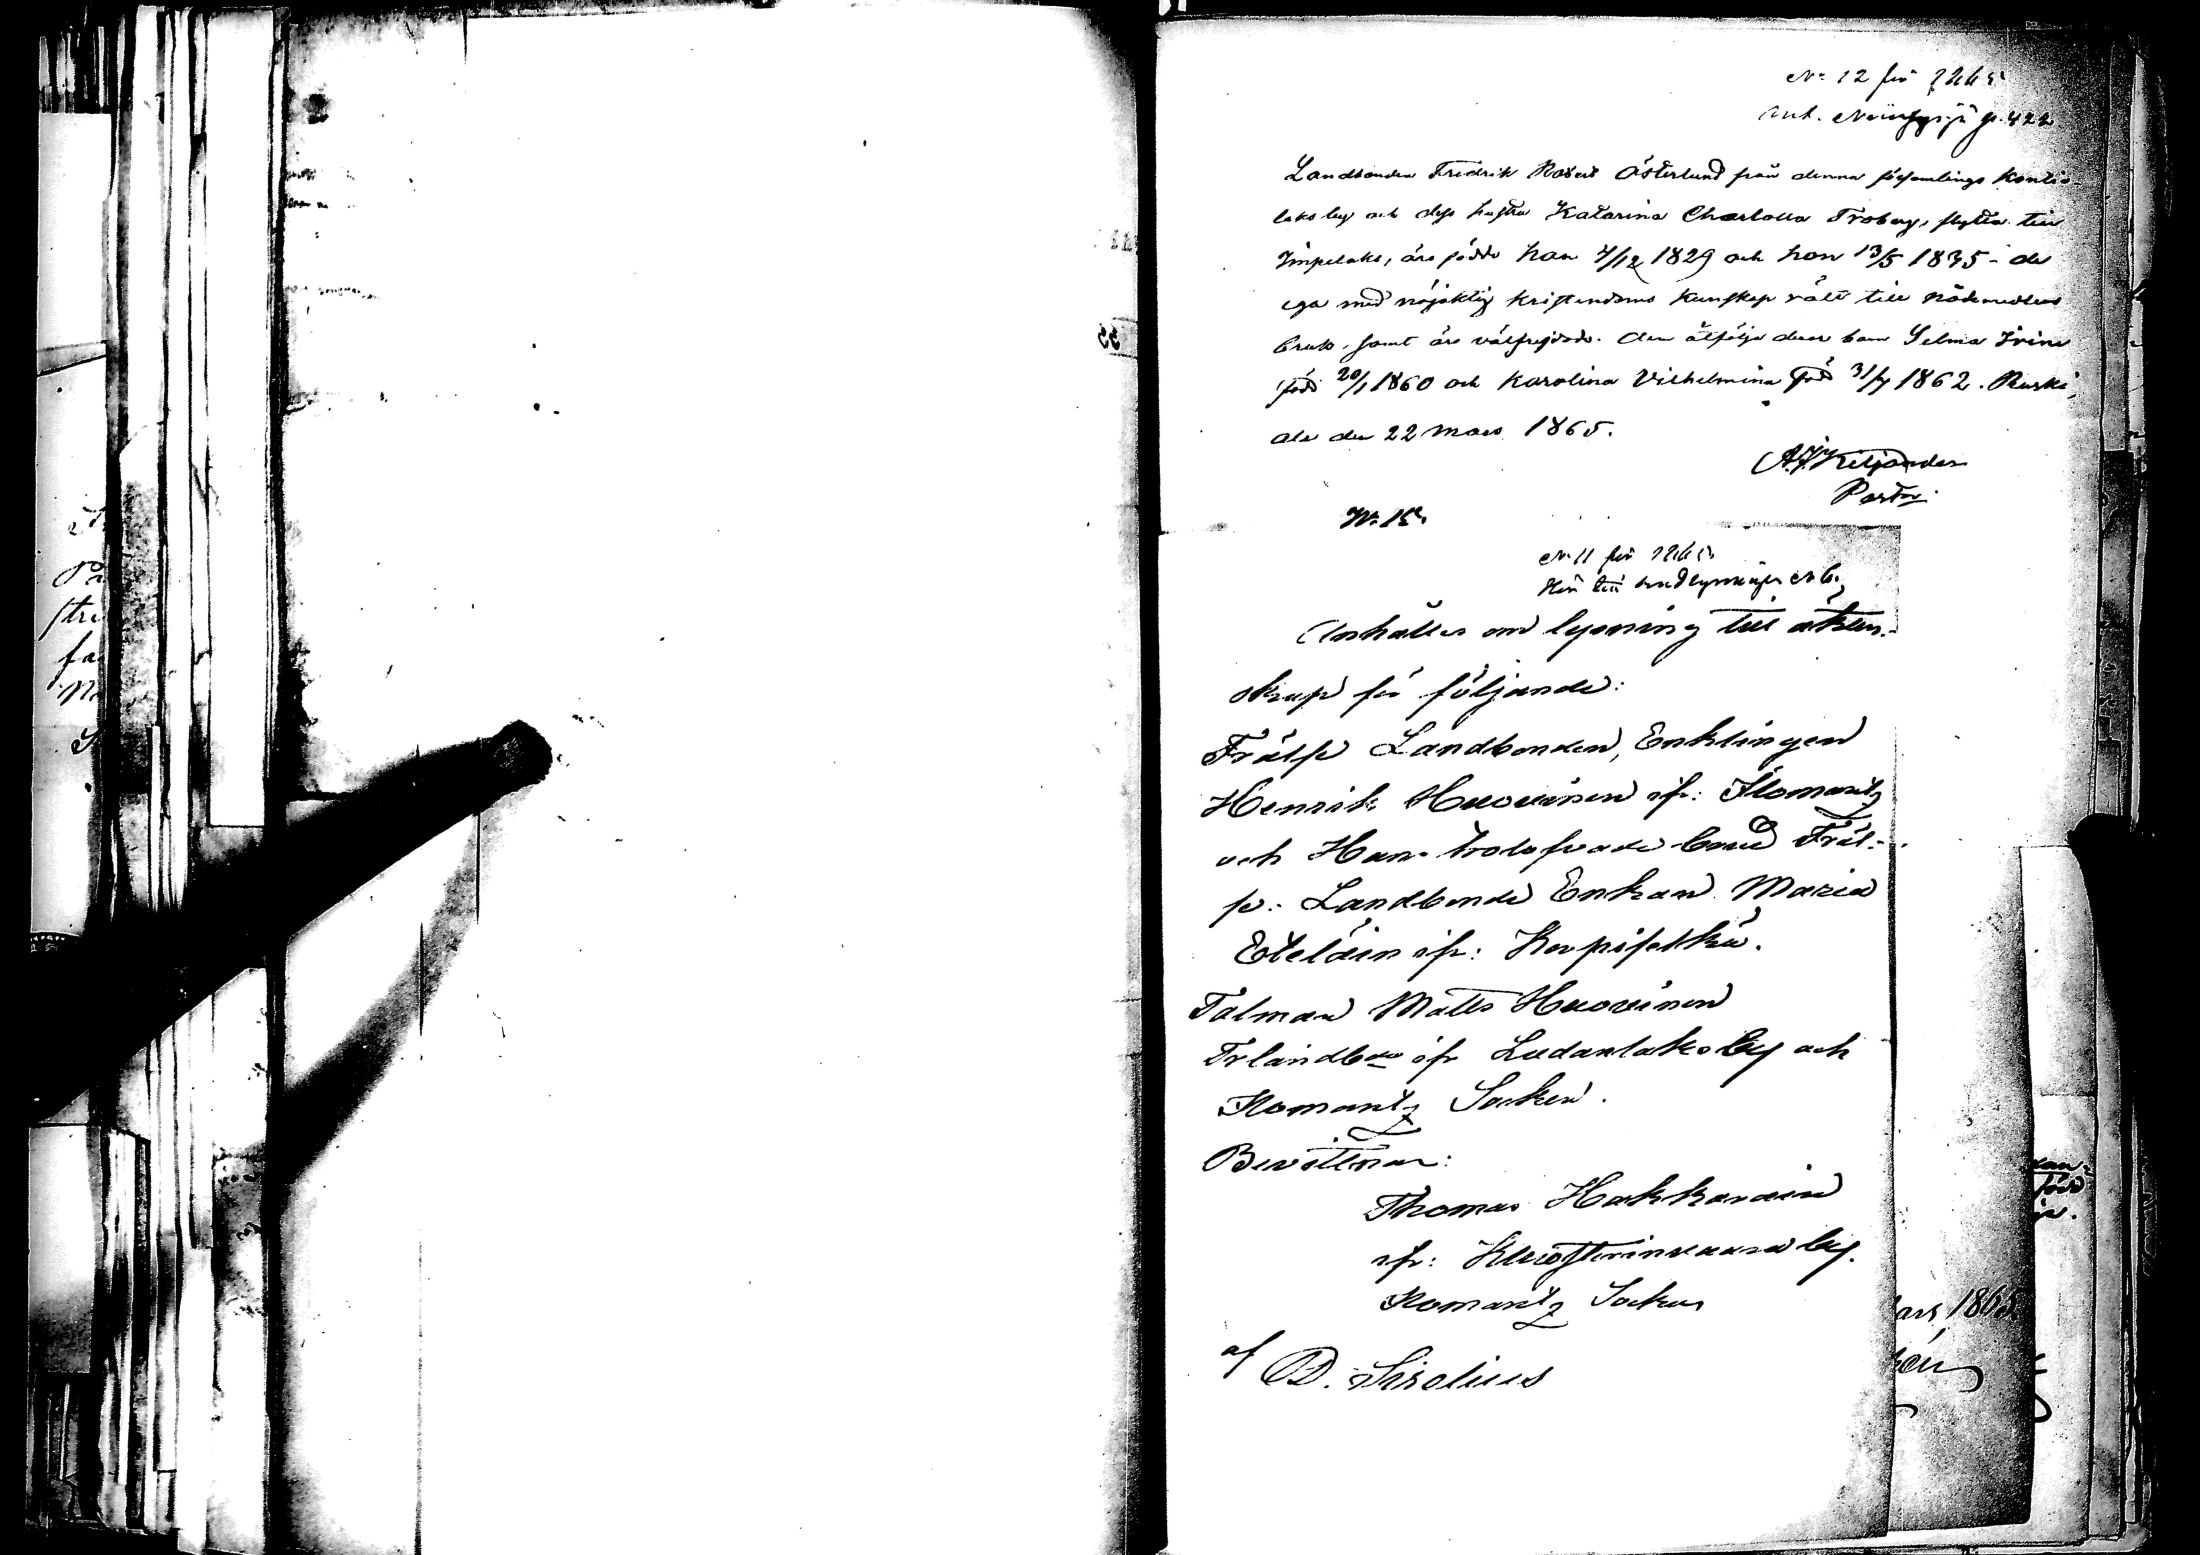 No 12 för 1865
Landbonden Fredrik Robert Österlund från denna församlings Kontio-
laks by och dess hustru Katarina Charlotta Troberg, flytta till
Impelaks, äro födde han 4/12 1829 och hon 13/5 1835 - de
ega med nöjaktig kristendoms kunskap rätt till nådemedlens
bruk, samt äro välfrejdade. Dem åtfölja deras barn Selma Irene
född 20/1 1860 och Karolina Vilhelmina född 31/7 1862. Ruski,
ala den 22 Mars 1865.
Pastor.
No 15.
No 11 för 1865.
Hör till
Anhålles om lysning till äkten-
skap för följande:
Frälse Landbonden, Enklingen
Henrik Huovinen ifr: Ilomantz
och Hans trolofvade brud Fräl-
se: Landbonde Enkan Maria
Eteläin ifr: Korpiselkä.
Talman Matts Huovinen
Frlandbde ifr Ludanlaks by och
Ilomantz Socken.
Bevittnar:
Thomas Hakkarain
ifr: by.
Ilomantz Socken
af D. Sirolius
ars 1865